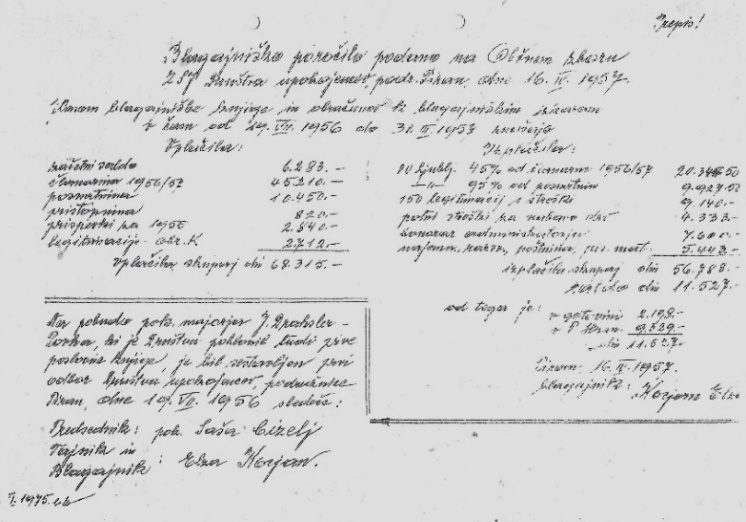 Prepis!
Blagajniško poročilo podano na Občnem zboru
ZSJ Društva upokojencev, podr. Piran, dne 16. IV. 1957.
Izkaz blagajniške knjige in obračunov k blagajniškim izkazom
v času od 29. VII. 1956 do 31. III. 1957 znašajo
Vplačila:
začetni saldo 6.283.-
članarina 1956/57 45.210.-
posmrtnina 10.450.-
pristopnina 820.-
prispevki za 1955 2.840.-
legitimacije obr. K 2712.-
Vplačila skupaj din 68.315.-
Izplačila:
Ljublj. 45% od članarin 1956/57 20.344.50
-"- 95% od posmrtnin 9.927.50
150 legitimacij s stroški 9.140.-
potni stroški za nabavo drv 4.333.-
honorar administratorja 7.600.-
najemn. razsv., poštnina, pis. mat. 5.443.-
izplačila skupaj din 56.788.-
saldo din 11.527.-
od tega je: v gotovini 2.198.-
v T. 9.329.-
din 11.527.-
Piran, 16. IV. 1957.
blagajnik: Korjan Elza
Na pobudo pok. majorja J. Draksler-
ja, ki je Društvu poklonil tudi prve
poslovne knjige, je bil sestavljen prvi
odbor Društva upokojencev, podružnice
Piran, dne 19. VII. 1956 sledeče:
Predsednik: pok. Saša Cizelj
Tajnik in
Blagajnik: Elza Korjan.
1975.